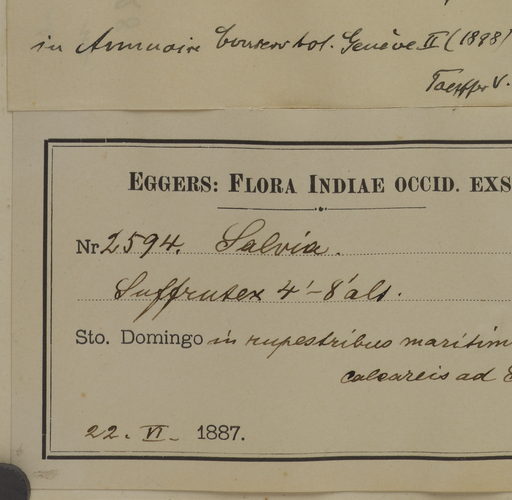 in Annuaire Conserv. bot. Genève II (1898)
V.
EGGERS: FLORA INDIAE OCCID. EXS
Nr. 2594. Salvia.
Suffrutex 4'-8' alt.
Sto. Domingo in rupestribus maritim
calcareis ad
22. VI. 1887.